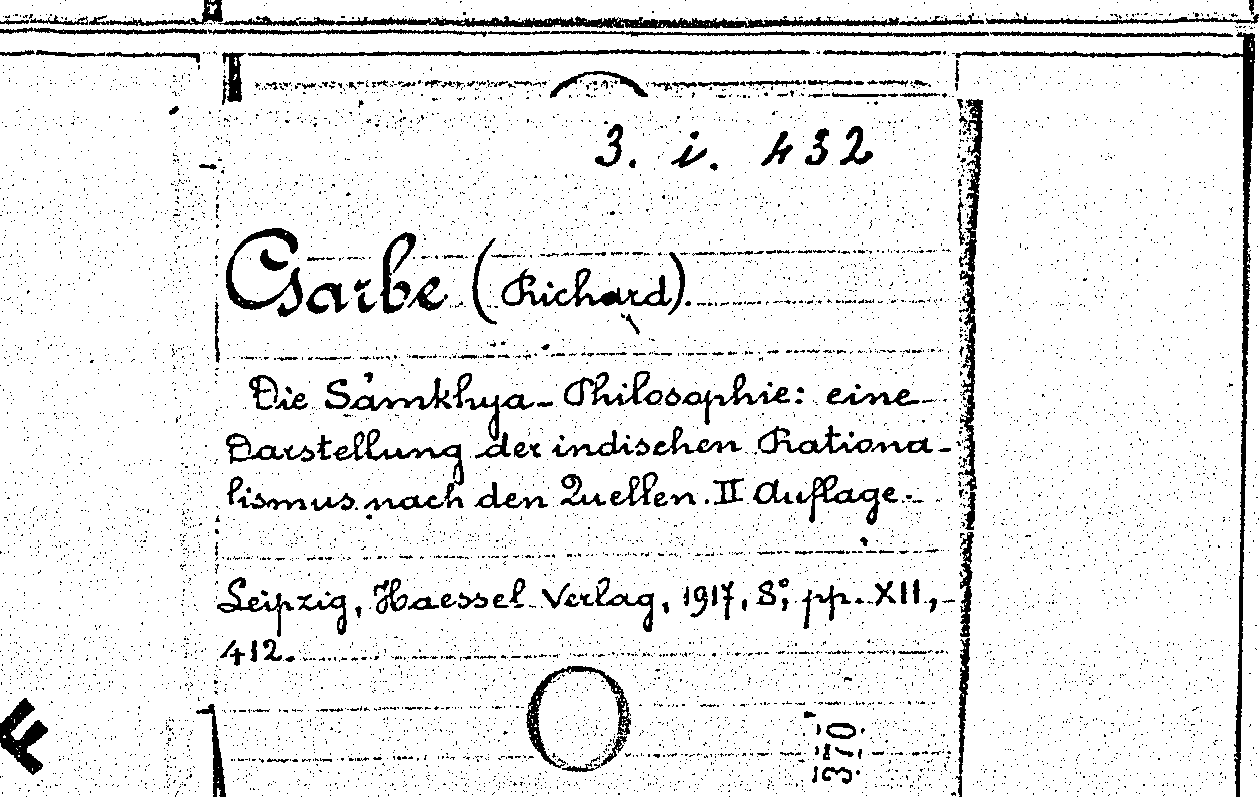 3. i. 432
Garbe (Richard).
Die Sâmkhya-Philosophie: eine
Darstellung der indischen Rationa-
lismus nach den Quellen. II Auflage.
Leipzig, Haessel Verlag, 1917, 8°, pp. XII,
412.
370
F